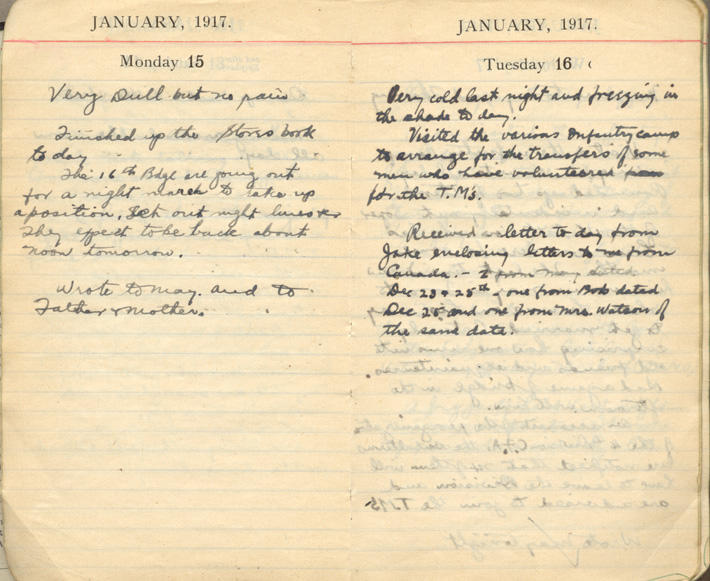 JANUARY, 1917.
Monday 15
Very Dull but no rain
Finished up the Stores book
to day
The 16th Bdge are going out
for a night march to take up
a position, out night lines &
They expect to be back about
noon tomorrow.
Wrote to May. and to
Father & Mother.
JANUARY, 1917.
Tuesday 16
Very cold last night and freezing in
the shade to day.
Visited the various Infantry camp
to arrange for the transfers of some
men who have volunteered from
for the T.Ms.
Received a letter to day from
Jake enclosing letters to me from
Canada. - 2 from May dated
Dec 23 & 25th, one from Bob dated
Dec 25 and one from Mrs. Watson of
the same date.